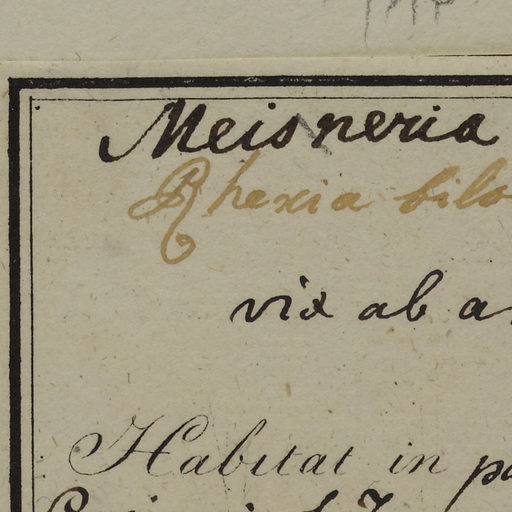 Meisneria
Rhexia bilo
vix ab a
Habitat in pa